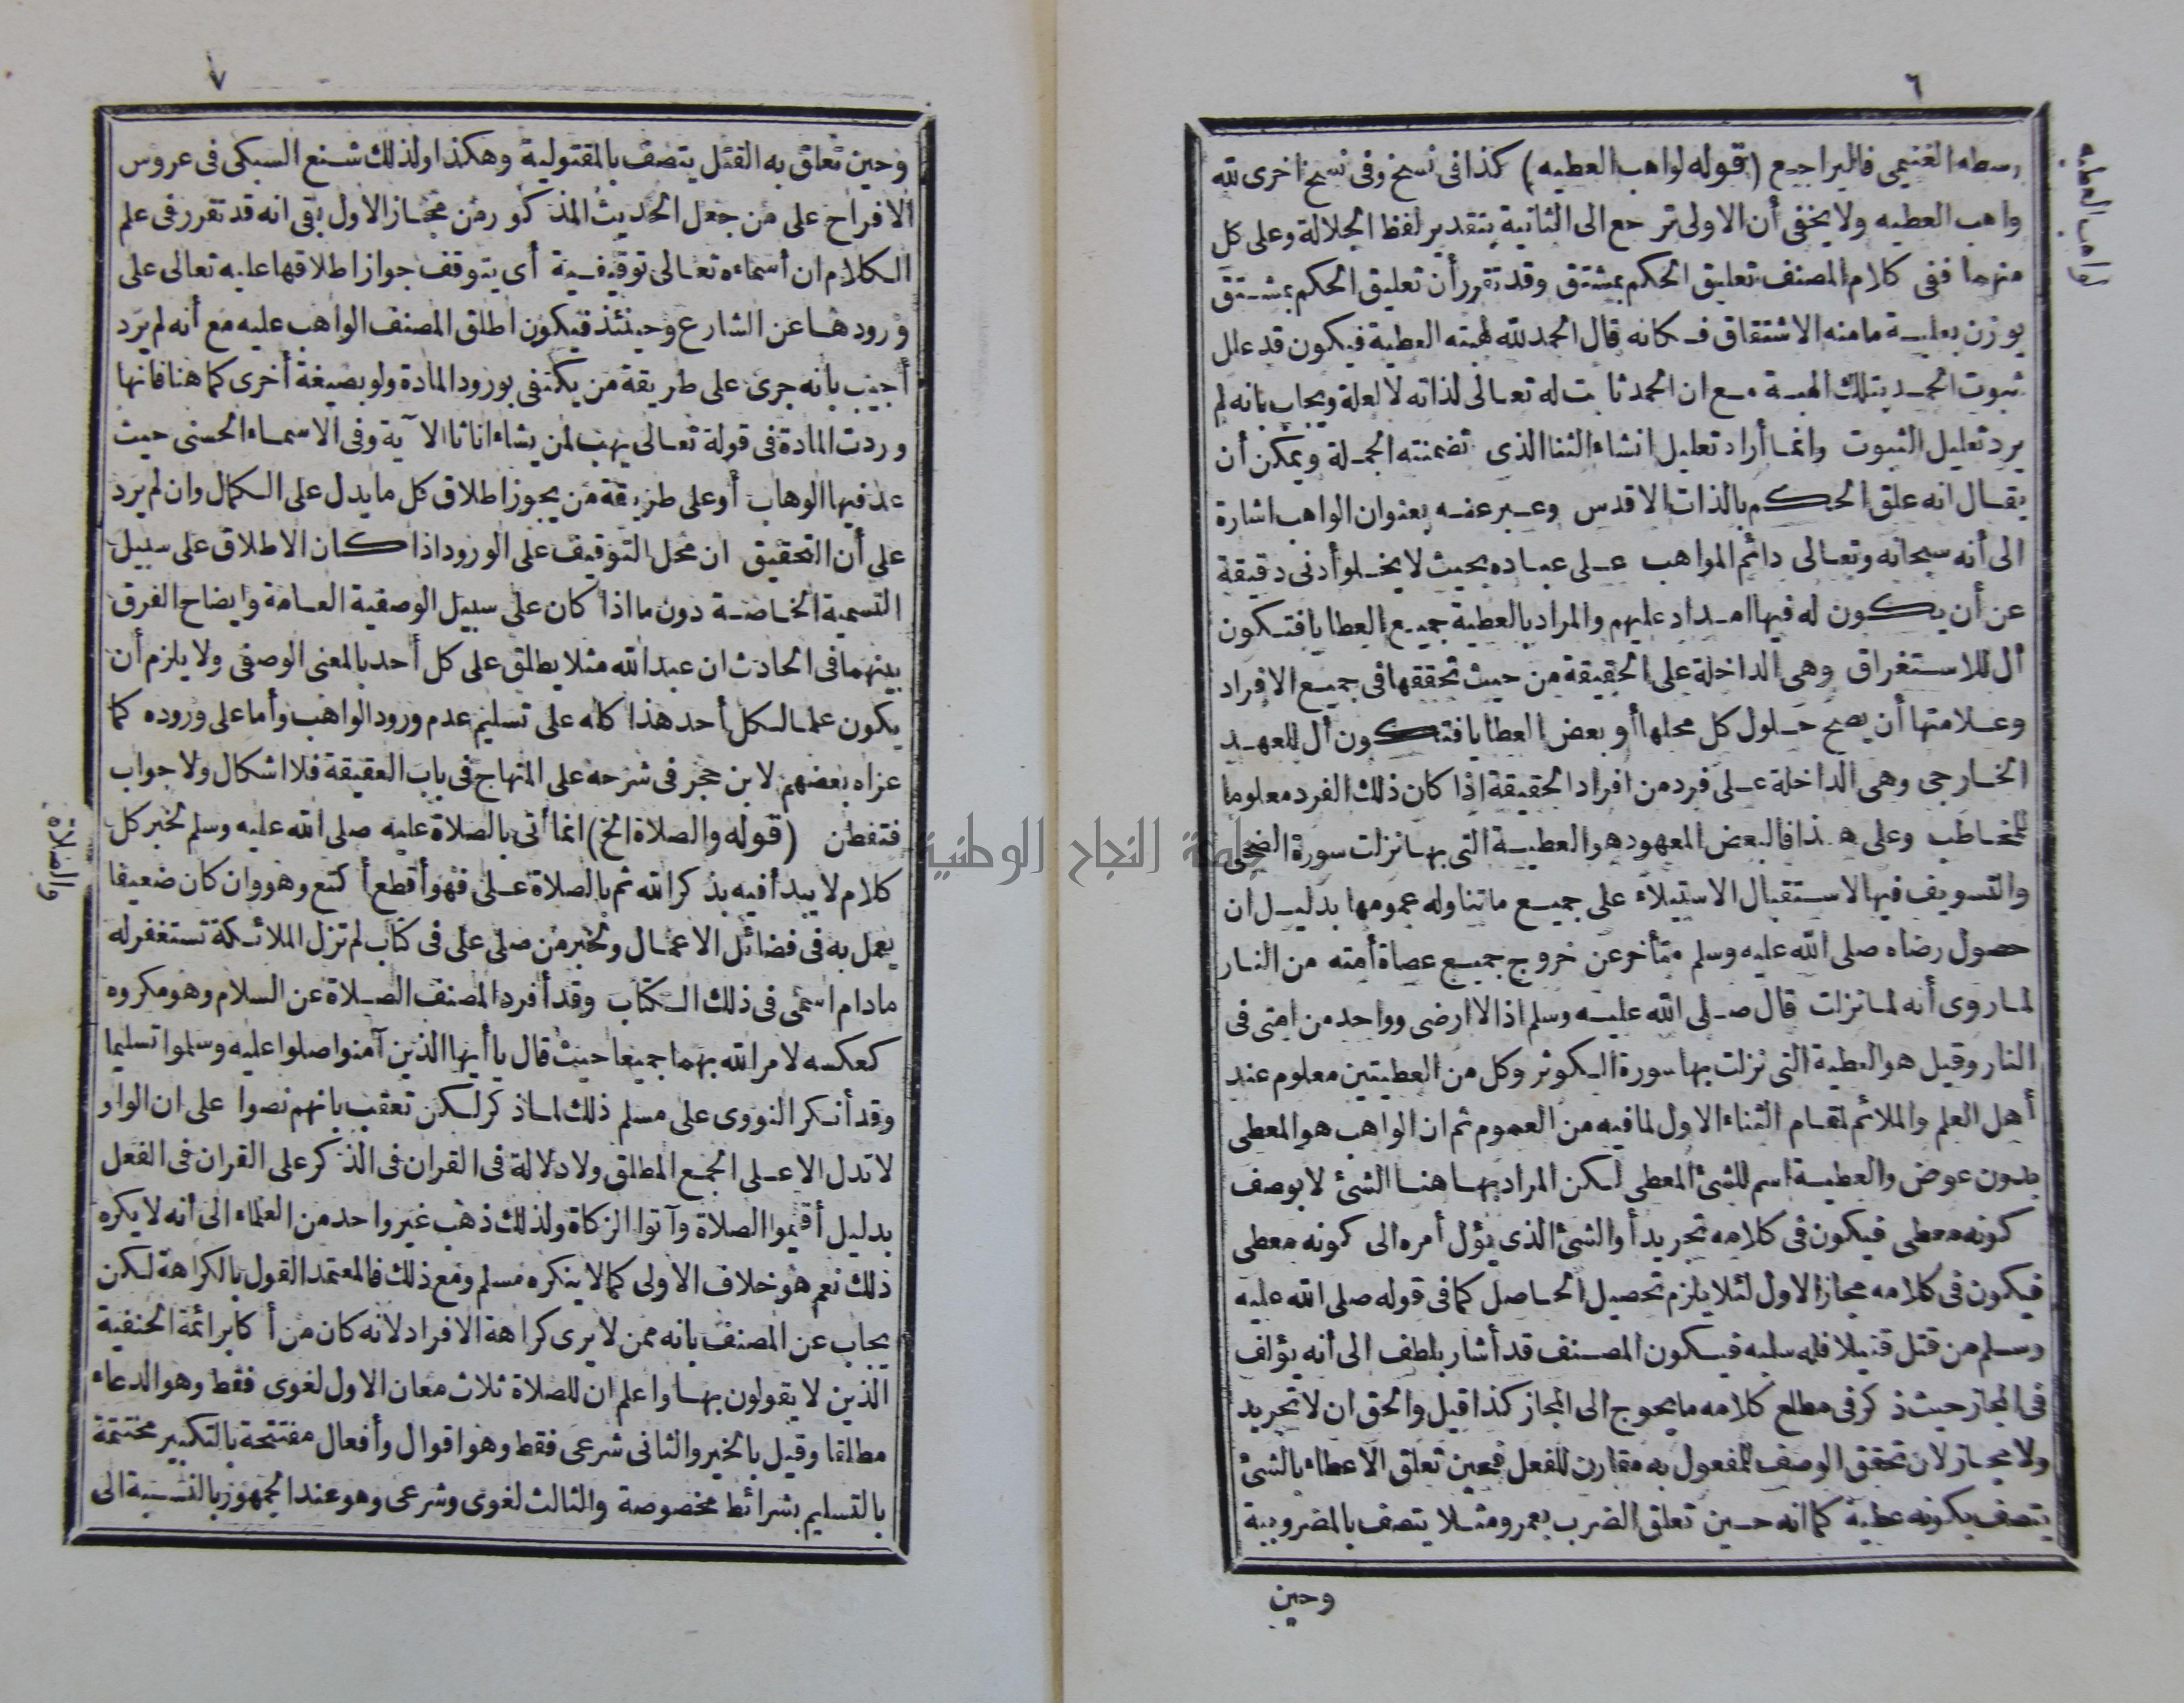 ٦
لواهب العطيه
بسطه الغنيمى فاليراجع (قوله لواهب العطيه) كذا فى نسخ وفى نسخ اخرى لله
واهب العطيه ولا يخفى أن الاولى ترجع الى الثانية بتقدير لفظ الجلالة وعلى كل
منهما ففى كلام المصنف تعليق الحكم بمشتق وقد تقرر أن تعليق الحكم بمشتق
يوزن بعلية مامنه الاشتقاق فكانه قال الحمد لله لهبته العطية فيكون قد علل
ثبوت الحمد بتلك الهبة مع ان الحمد ثابت له تعالى لذاته لا لعلة ويجاب بانه لم
يرد تعليل الثبوت وانما أراد تعليل انشاء الثنا الذى تضمنته الجملة ويمكن أن
يقال انه علق الحكم بالذات الاقدس وعبر عنه بعنوان الواهب اشارة
الى أنه سبحانه وتعالى دائم المواهب على عباده بحيث لا يخلو أدنى دقيقة
عن أن يكون له فيها امداد عليهم والمراد بالعطية جميع العطايا فتكون
أل للاستغراق وهى الداخلة على الحقيقة من حيث تحققها فى جميع الافراد
وعلامتها أن يصح حلول كل محلها أو بعض العطايا فتكون أل للعهد
الخارجى وهى الداخلة على فرد من افراد الحقيقة اذا كان ذلك الفرد معلوما
للمخاطب وعلى هذا فالبعض المعهود هو العطية التى بها نزلت سورة الضحى
والتسويف فيها لاستقبال الاستيلاء على جميع ما تناوله عمومها بدليل ان
حصول رضاه صلى الله عليه وسلم متأخر عن خروج جميع عصاة أمته من النار
لما روى أنه لما نزلت قال صلى الله عليه وسلم اذا لا ارضى وواحد من امتى فى
النار وقيل هو العطية التى نزلت بها سورة الكوثر وكل من العطيتين معلوم عند
أهل العلم والملائم لمقام الثناء الاول لما فيه من العموم ثم ان الواهب هو المعطى
بدون عوض والعطية اسم للشئ المعطى لكن المراد بها هنا الشئ لا بوصف
كونه معطى فيكون فى كلامه تجريد أو الشئ الذى يؤل أمره الى كونه معطى
فيكون فى كلامه مجاز الاول لئلا يلزم تحصيل الحاصل كما فى قوله صلى الله عليه
وسلم من قتل قتيلا فله سلبه فيكون المصنف قد أشار بلطف الى أنه يؤلف
فى المجاز حيث ذكر فى مطلع كلامه ما يحوج الى المجاز كذا قيل والحق ان لا تجريد
ولا مجاز لان تحقق الوصف للمفعول به مقارن للفعل فحين تعلق الاعطاء بالشئ
يتصف بكونه عطية كما انه حين تعلق الضرب بعمرو مثلا يتصف بالمضروبية
وحين
٧
وحين تعلق به القتل يتصف بالمقتولية وهكذا ولذلك شنع السبكى فى عروس
الافراح على من جعل الحديث المذكور من مجاز الاول بقى انه قد تقرر فى علم
الكلام ان أسماءه تعالى توقيفية أى يتوقف جواز اطلاقها عليه تعالى على
ورودها عن الشارع وحينئذ فيكون اطلق المصنف الواهب عليه مع أنه لم يرد
أجيب بانه جرى على طريقة من يكتفى بورود المادة ولو بصيغة أخرى كما هنا فانها
وردت المادة فى قوله تعالى يهب لمن يشاء اناثا الآية وفى الاسماء الحسنى حيث
عد فيها الوهاب أو على طريقة من يجوز اطلاق كل ما يدل على الكمال وان لم يرد
على أن التحقيق ان محل التوقيف على الورود اذا كان الاطلاق على سبيل
التسمية الخاصة دون ما اذا كان على سبيل الوصفية العامة وايضاح الفرق
بينهما فى الحادث ان عبد الله مثلا يطلق على كل أحد بالمعنى الوصفى ولا يلزم أن
يكون علما لكل أحد هذا كله على تسليم عدم ورود الواهب وأما على وروده كما
عزاه بعضهم لابن حجر فى شرحه على المنهاج فى باب العقيقة فلا اشكال ولا جواب
فتفطن (قوله والصلاة الخ) انما أتى بالصلاة عليه صلى الله عليه وسلم لخبر كل
والصلاة
كلام لا يبدأ فيه بذكر الله ثم بالصلاة على فهو أقطع أكتع وهو وان كان ضعيفا
يعمل به فى فضائل الاعمال ولخبر من صلى على فى كتاب لم تزل الملائكة تستغفر له
مادام اسمى فى ذلك الكتاب وقد أفرد المصنف الصلاة عن السلام وهو مكروه
كعكسه لامر الله بهما جميعا حيث قال يا أيها الذين آمنوا صلوا عليه وسلموا تسليما
وقد أنكر النووى على مسلم ذلك لما ذكر لكن تعقب بانهم نصوا على ان الواو
لا تدل الا على الجمع المطلق ولا دلالة فى القران فى الذكر على القران فى الفعل
بدليل أقيموا الصلاة وآتوا الزكاة ولذلك ذهب غير واحد من العلماء الى أنه لا يكره
ذلك نعم هو خلاف الاولى كما لا ينكره مسلم ومع ذلك فالمعتمد القول بالكراهة لكن
يجاب عن المصنف بانه ممن لا يرى كراهة الافراد لانه كان من أكابر ائمة الحنفية
الذين لا يقولون بها واعلم ان للصلاة ثلاث معان الاول لغوى فقط وهو الدعاء
مطلقا وقيل بالخير والثانى شرعى فقط وهو اقوال وأفعال مفتتحة بالتكبير مختتمة
بالتسليم بشرائط مخصوصة والثالث لغوى وشرعى وهو عند الجمهور بالنسبة الى
جامعة النجاح الوطنية